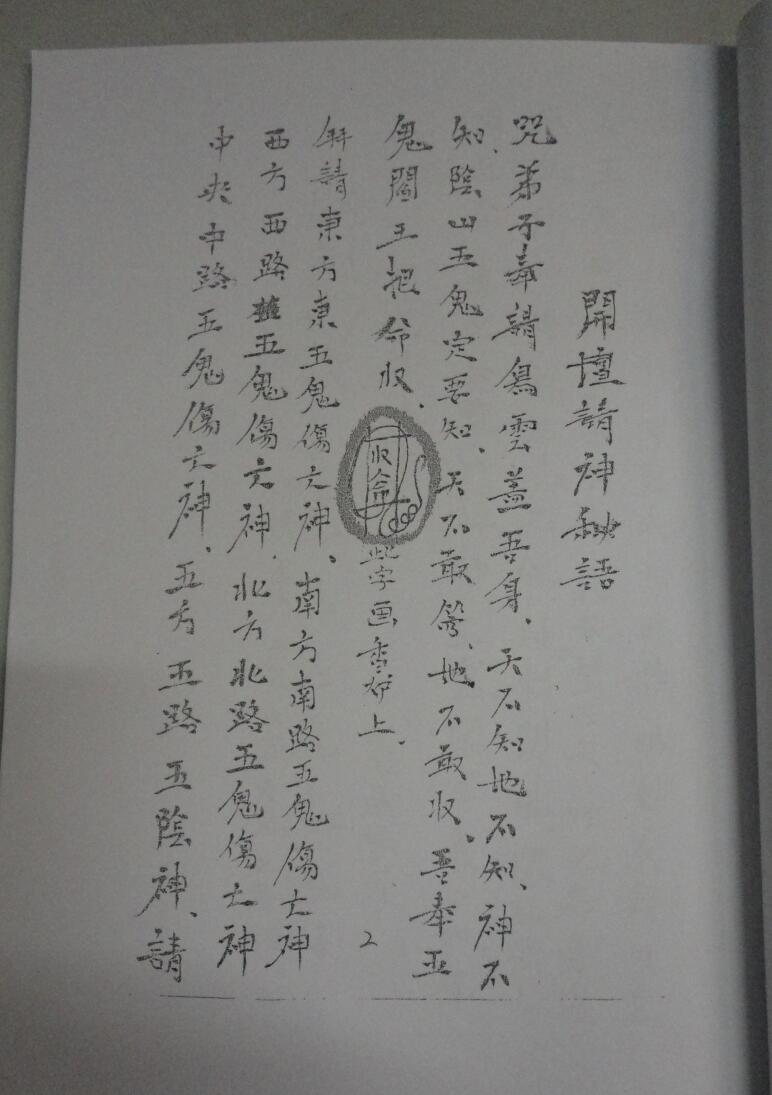 開壇請神秘語
咒弟子奉請烏雲蓋吾身、天不知地不知、神不
知、陰山五鬼定要知、天不敢答、地不敢收、吾奉五
鬼閻王把命收、
收命
此字画香炉上、
拜請東方東五鬼傷亡神、南方南路五鬼傷亡神
西方西路五鬼傷亡神、北方北路五鬼傷亡神
中央中路五鬼傷亡神、五方五路五陰神、請
2